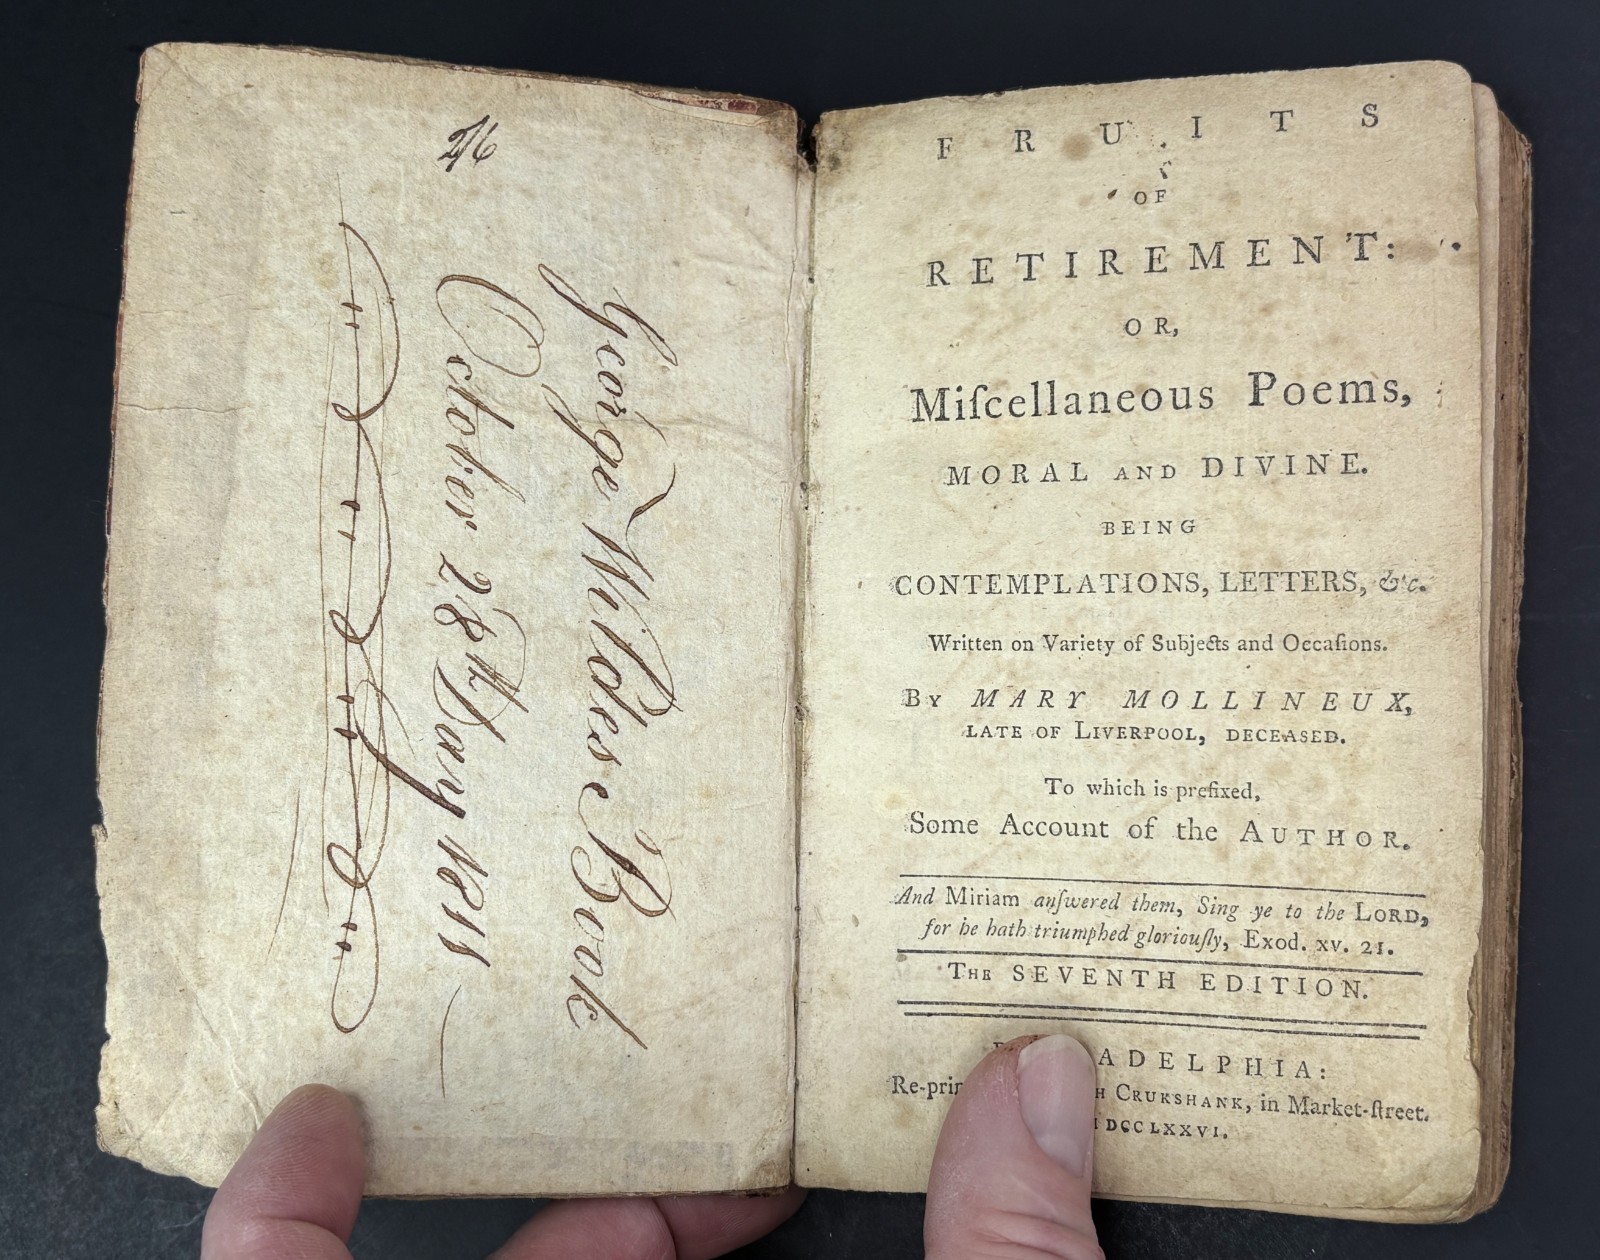 2/6
George Wildes Book
October 28th Day 1811
FRUITS
OF
RETIREMENT:
OR,
Miſcellaneous Poems,
MORAL AND DIVINE.
BEING
CONTEMPLATIONS, LETTERS, &c.
Written on Variety of Subjects and Occaſions.
By MARY MOLLINEUX,
LATE OF LIVERPOOL, DECEASED.
To which is prefixed,
Some Account of the AUTHOR.
And Miriam anſwered them, Sing ye to the LORD,
for he hath triumphed gloriouſly, Exod. xv. 21.
THE SEVENTH EDITION.
ADELPHIA:
Re-prin H CRUKSHANK, in Market-ſtreet.
MDCCLXXVI.